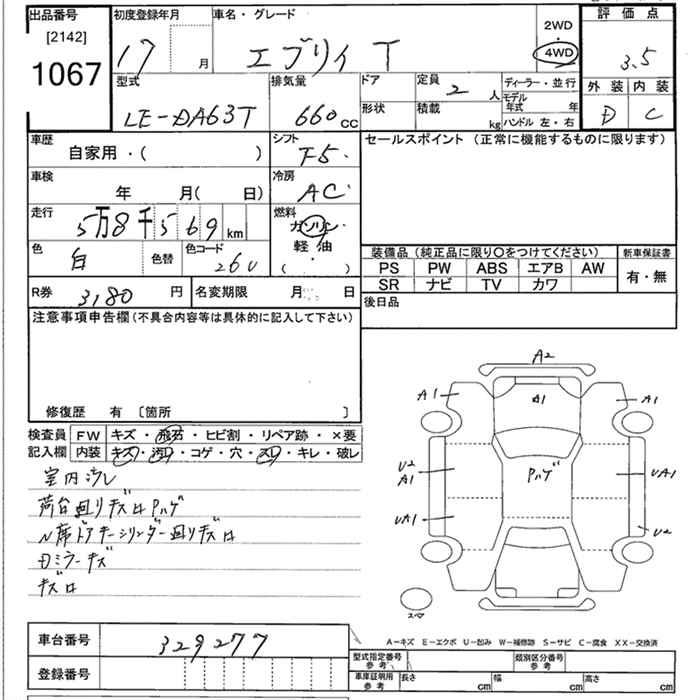 出品番号 初度登録年月 車名・グレード 評価点
[2142] 1067
17 月 エブリィ T
2WD 4WD 3.5
型式 排気量 ドア 定員 2 人 ディーラー・並行 外装 内装
LE-DA63T 660 cc 形状 積載 kg モデル年式 年 D C
ハンドル 左・右
車歴 シフト セールスポイント (正常に機能するものに限ります)
自家用・( ) F5・
車検 冷房
年 月( 日) AC
走行 燃料
5万8千569 km ガソリン
色 色替 色コード 軽油
白 26U ( )
装備品 (純正品に限り○をつけてください) 新車保証書
PS PW ABS エアB AW 有・無
SR ナビ TV カワ
R券 3,180 円 名変期限 月 日 後日品
注意事項申告欄 (不具合内容等は具体的に記入して下さい)
修復歴 有 [箇所 ]
検査員 FW キズ・飛石・ヒビ割・リペア跡・×要
記入欄 内装 キズ・汚れ・コゲ・穴・スレ・キレ・破レ
室内汚レ
荷台廻リキズ凹Pハゲ
N席ドアキーシリンダー廻りキズ凹
Dミラーキズ
キズ凹
A2
A1 A1 A1
U2 A1 Pハゲ UA1
UA1 U2
スペア
A-キズ E-エクボ U-凹み W-補修跡 S-サビ C-腐食 XX-交換済
車台番号 329277
型式指定番号 参考 類別区分番号 参考
登録番号
車庫証明用 参考 長さ cm 幅 cm 高さ cm